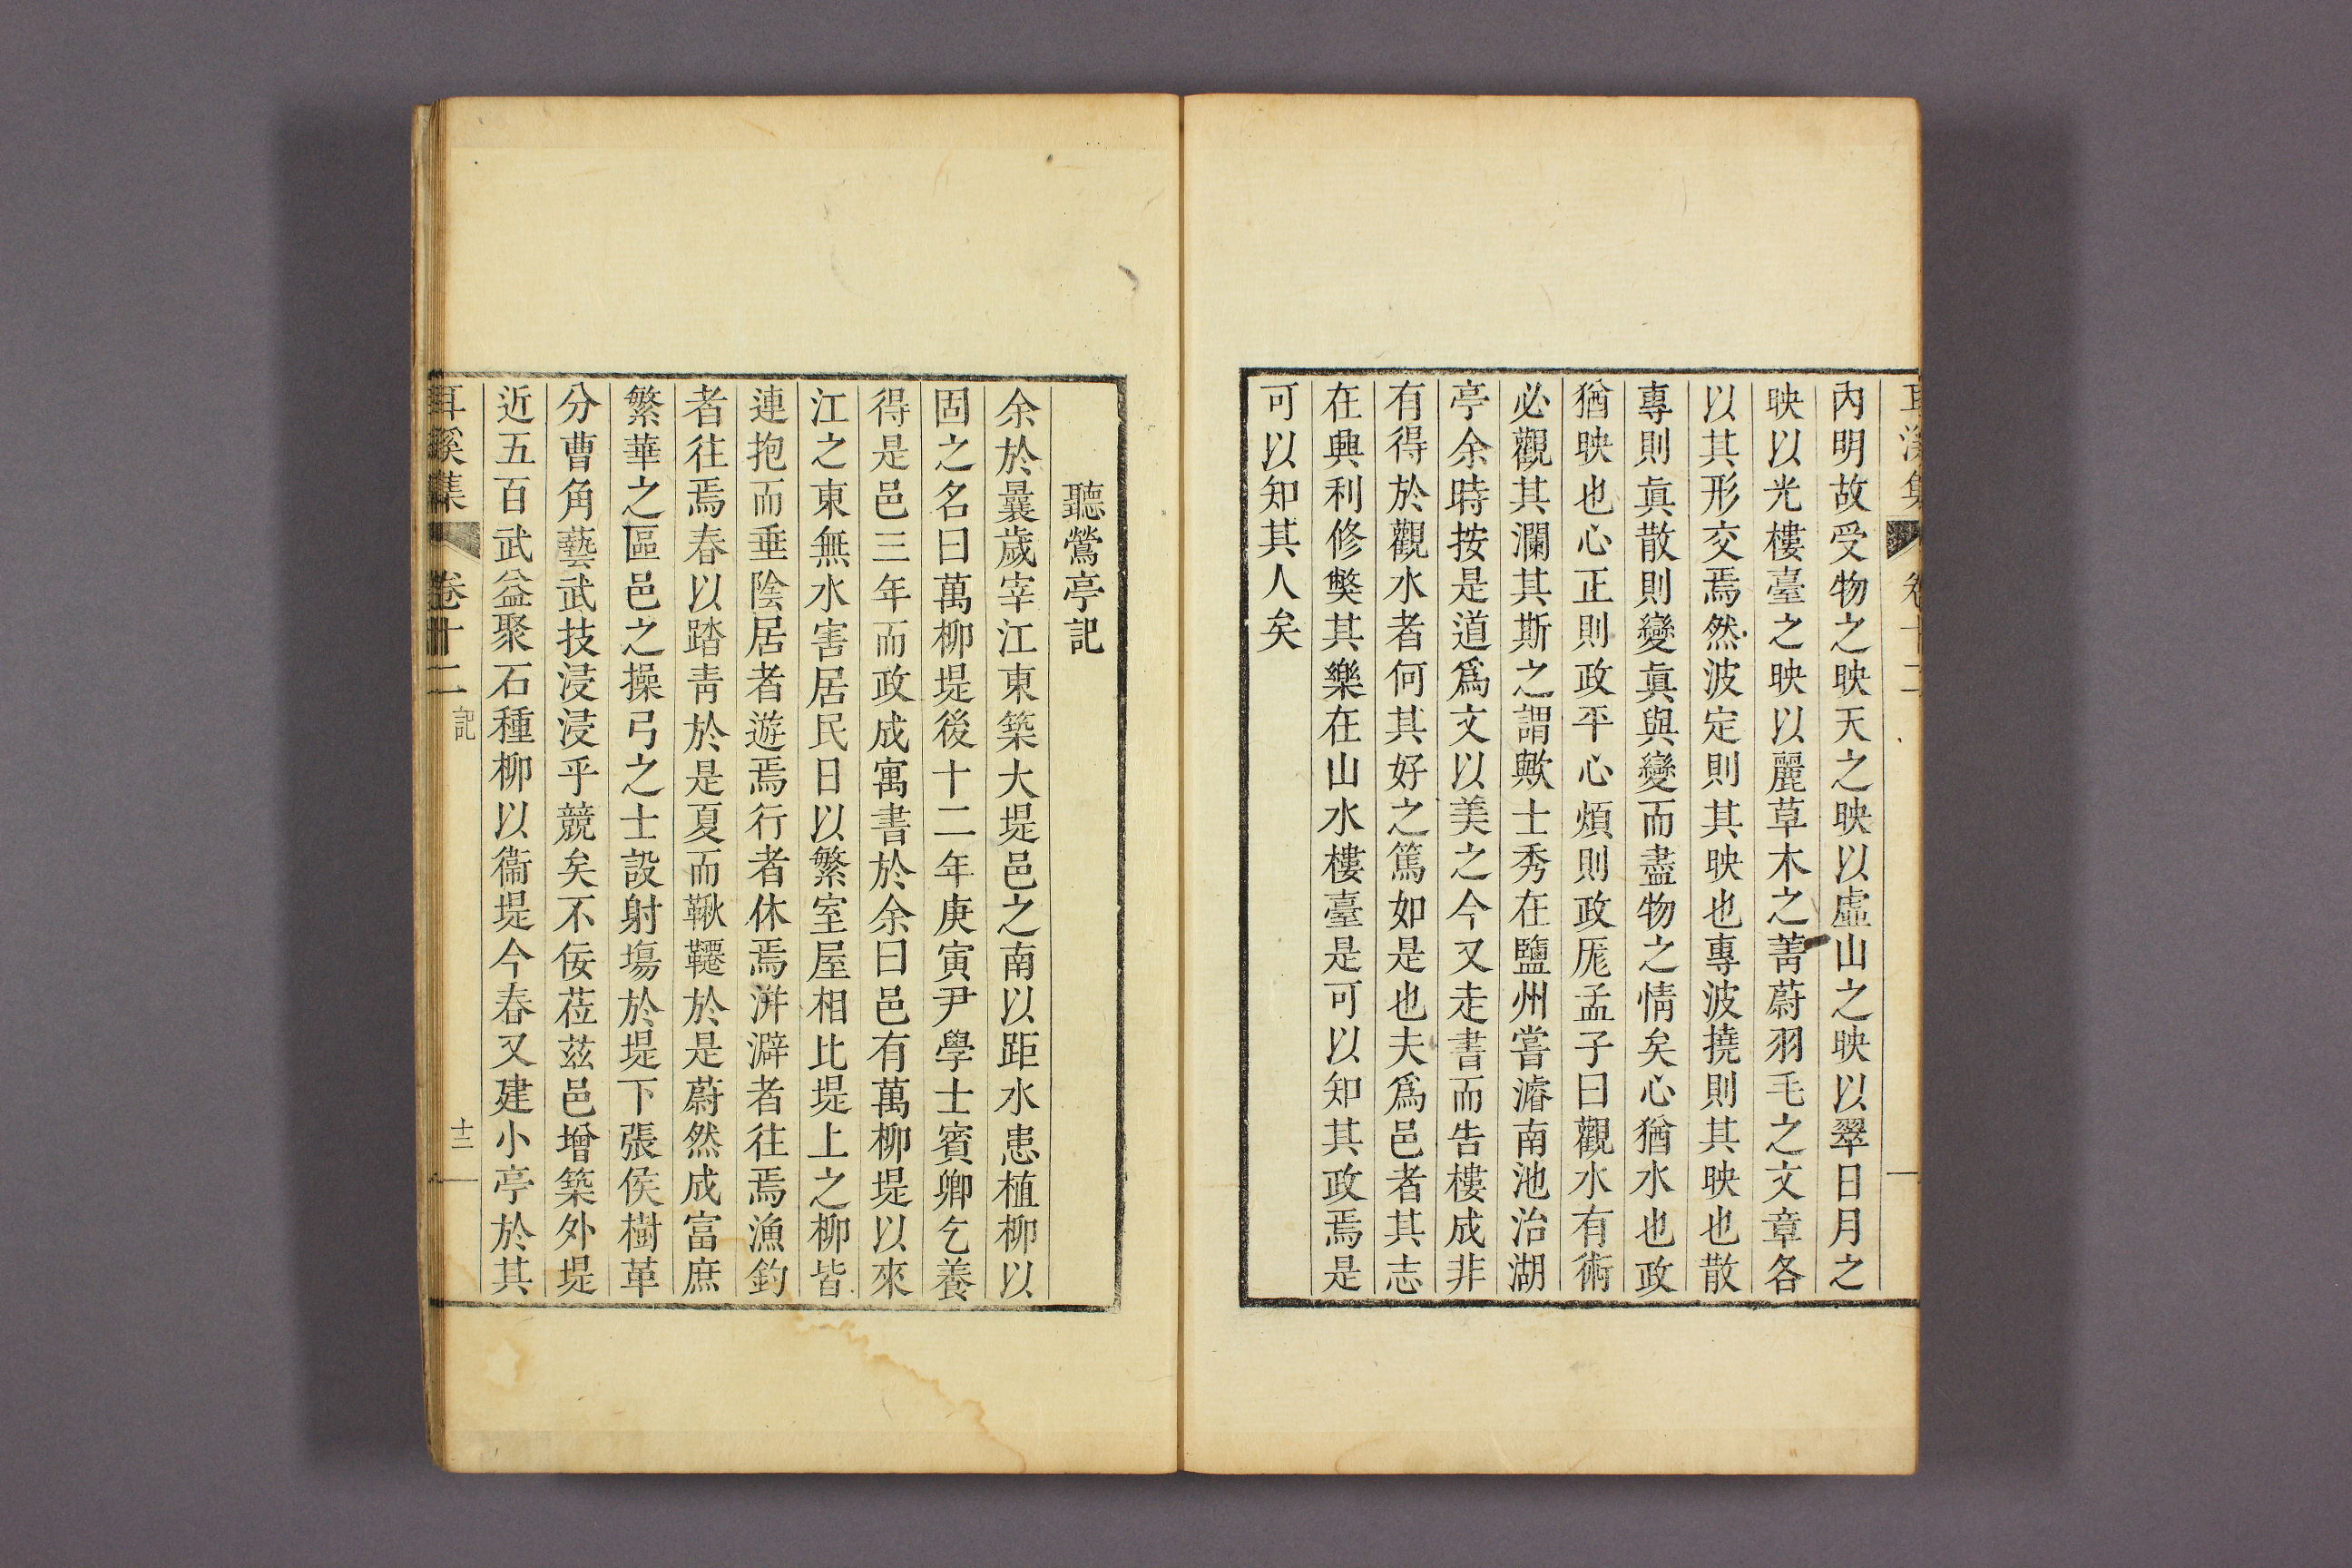 耳溪集 卷十二
內明故受物之映天之映以虛山之映以翠日月之
映以光樓臺之映以麗草木之菁蔚羽毛之文章各
以其形交焉然波定則其映也專波撓則其映也散
專則眞散則變眞與變而盡物之情矣心猶水也政
猶映也心正則政平心煩則政厖孟子曰觀水有術
必觀其瀾其斯之謂歟士秀在鹽州嘗濬南池治湖
亭余時按是道爲文以美之今又走書而告樓成非
有得於觀水者何其好之篤如是也夫爲邑者其志
在興利修獘其樂在山水樓臺是可以知其政焉是
可以知其人矣
聽鶯亭記
余於曩歲宰江東築大堤邑之南以距水患植柳以
固之名曰萬柳堤後十二年庚寅尹學士賓卿乞養
得是邑三年而政成寓書於余曰邑有萬柳堤以來
江之東無水害居民日以繁室屋相比堤上之柳皆
連抱而垂陰居者遊焉行者休焉洴澼者往焉漁釣
者往焉春以踏靑於是夏而鞦韆於是蔚然成富庶
繁華之區邑之操弓之士設射塲於堤下張侯樹革
分曹角藝武技浸浸乎競矣不佞莅玆邑增築外堤
近五百武益聚石種柳以衞堤今春又建小亭於其
耳溪集 卷十二 記 十三